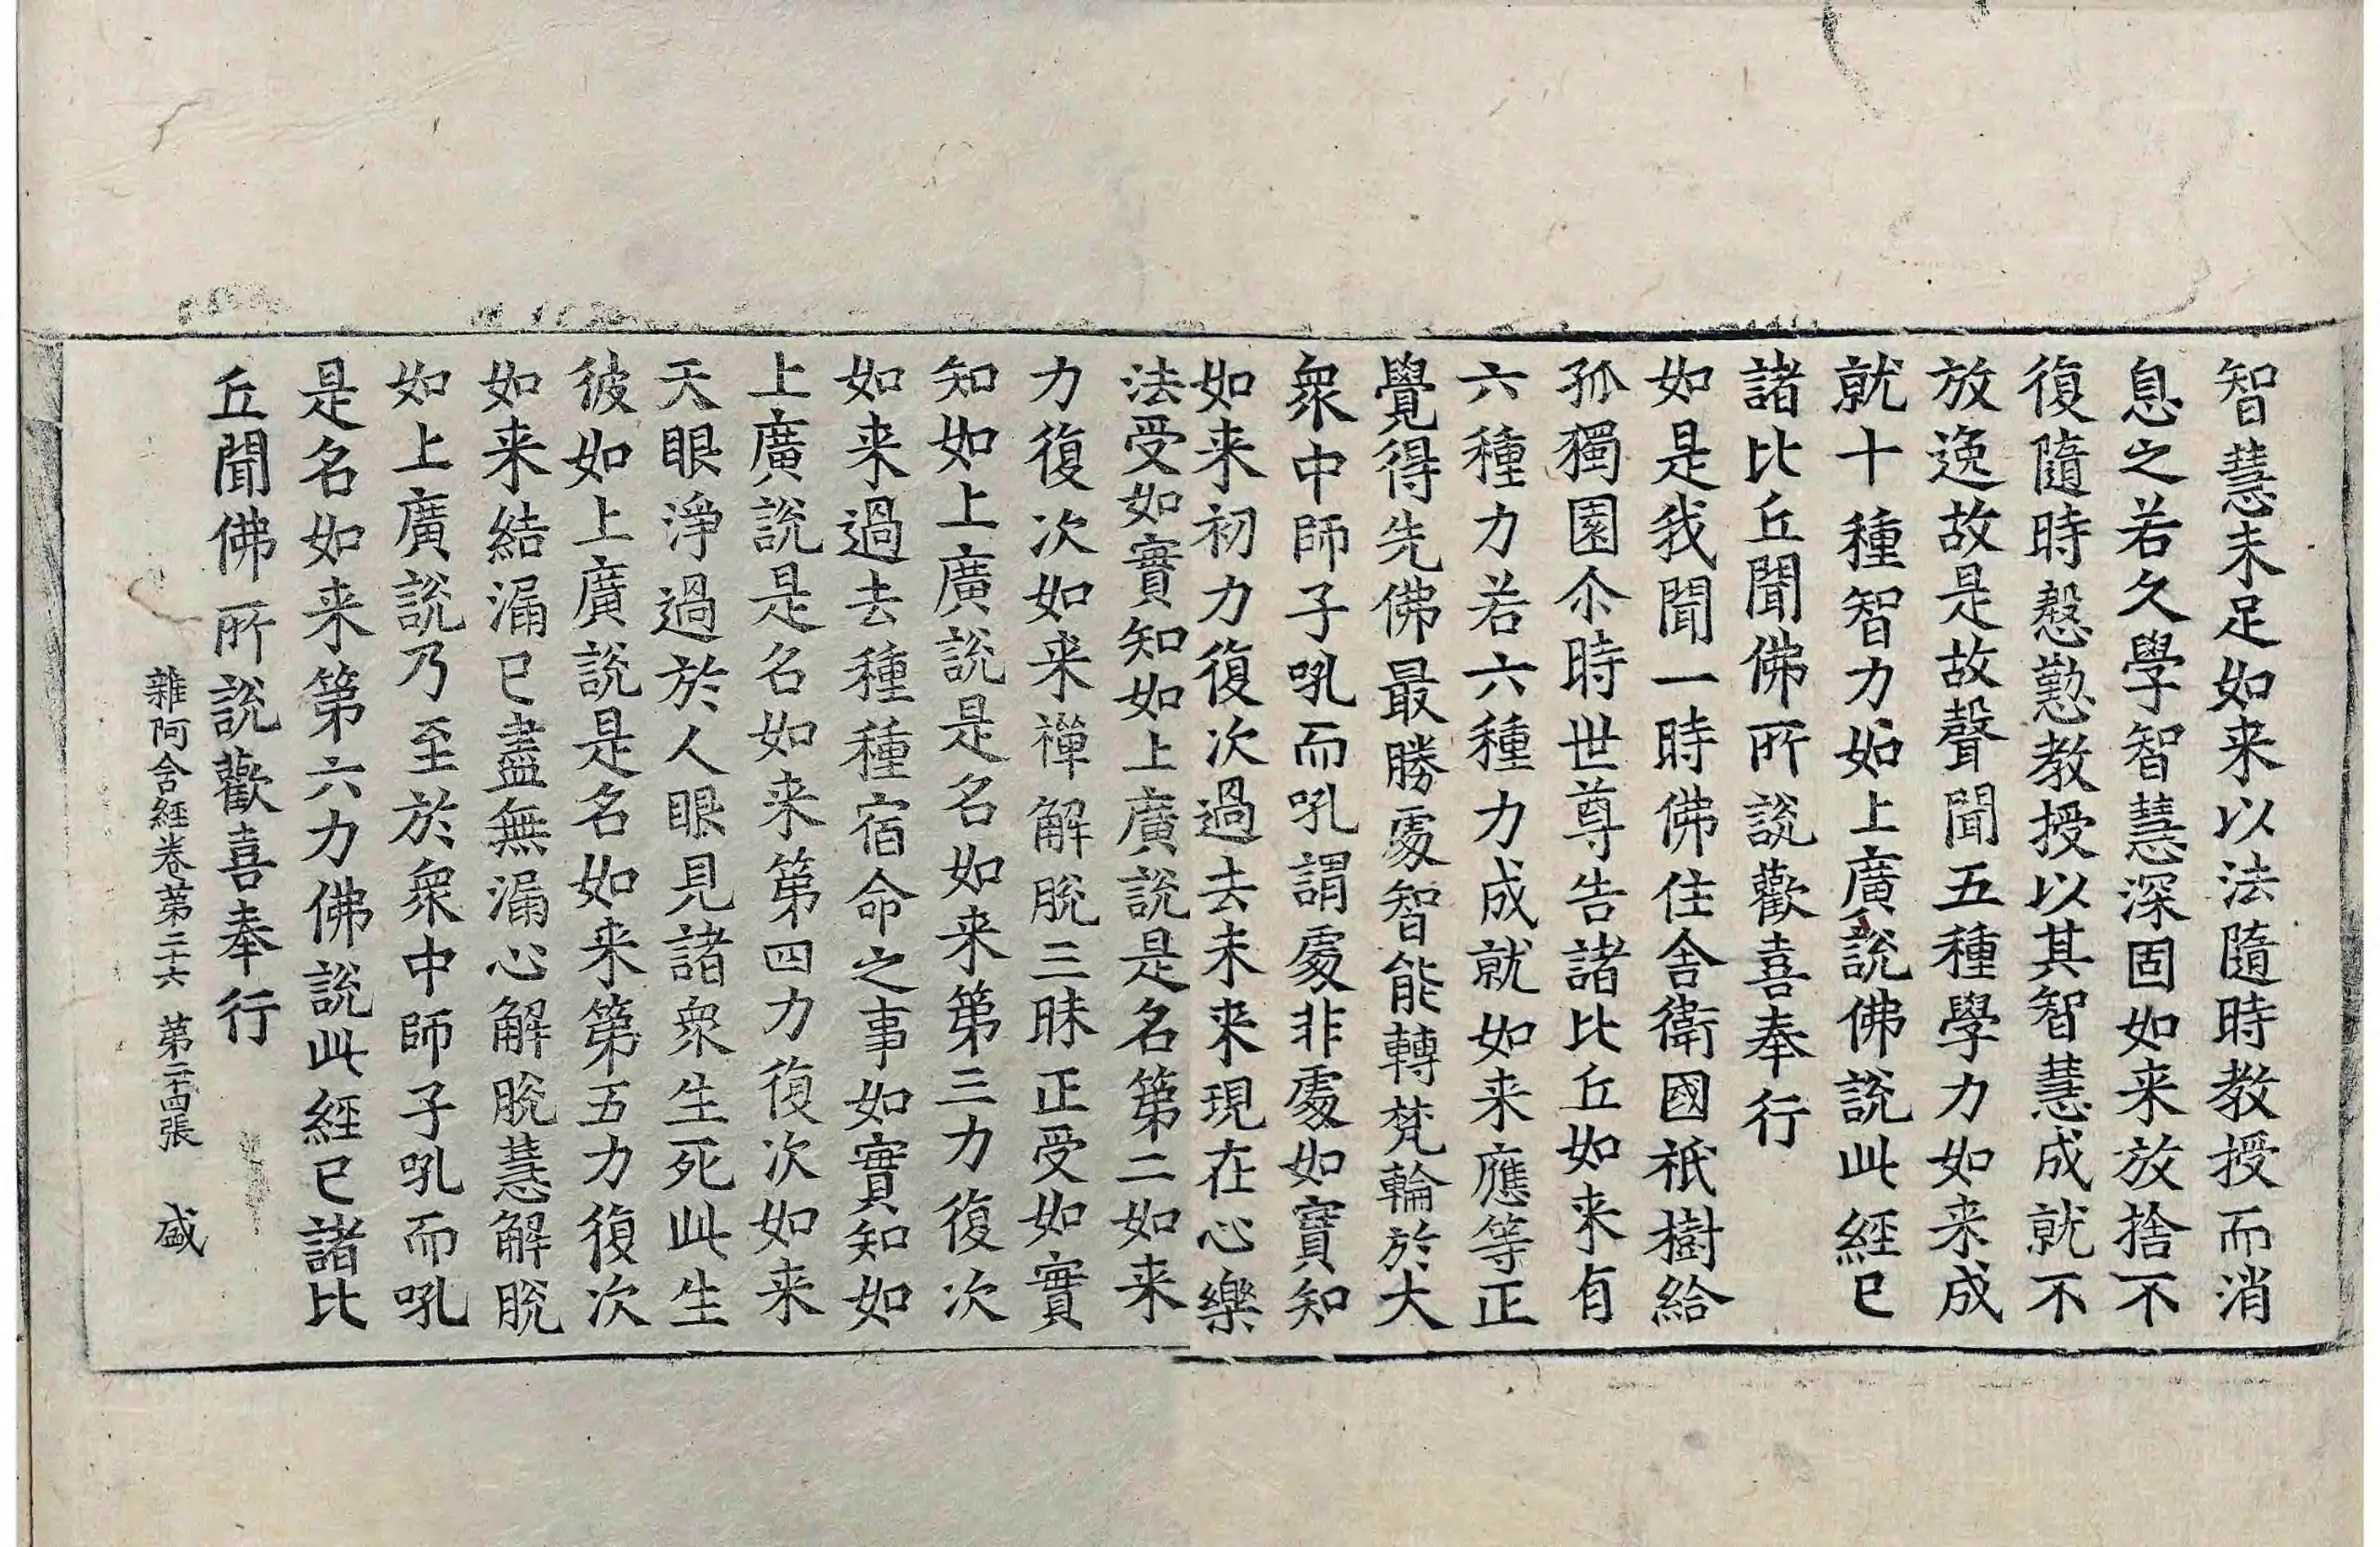 智慧未足如来以法隨時教授而消
息之若久學智慧深固如来放捨不
復隨時慇懃教授以其智慧成就不
放逸故是故聲聞五種學力如来成
就十種智力如上廣說佛說此經已
諸比丘聞佛所說歡喜奉行
如是我聞一時佛住舍衛國祇樹給
孤獨園尒時世尊告諸比丘如来有
六種力若六種力成就如来應等正
覺得先佛最勝處智能轉梵輪於大
衆中師子吼而吼謂處非處如實知
如来初力復次過去未来現在心樂
法受如實知如上廣說是名第二如来
力復次如来禪解脫三昧正受如實
知如上廣說是名如来第三力復次
如来過去種種宿命之事如實知如
上廣說是名如来第四力復次如来
天眼淨過於人眼見諸衆生死此生
彼如上廣說是名如来第五力復次
如来結漏已盡無漏心解脫慧解脫
如上廣說乃至於衆中師子吼而吼
是名如来第六力佛說此經已諸比
丘聞佛所說歡喜奉行
雜阿含經卷第二十六 第二十四張 盛